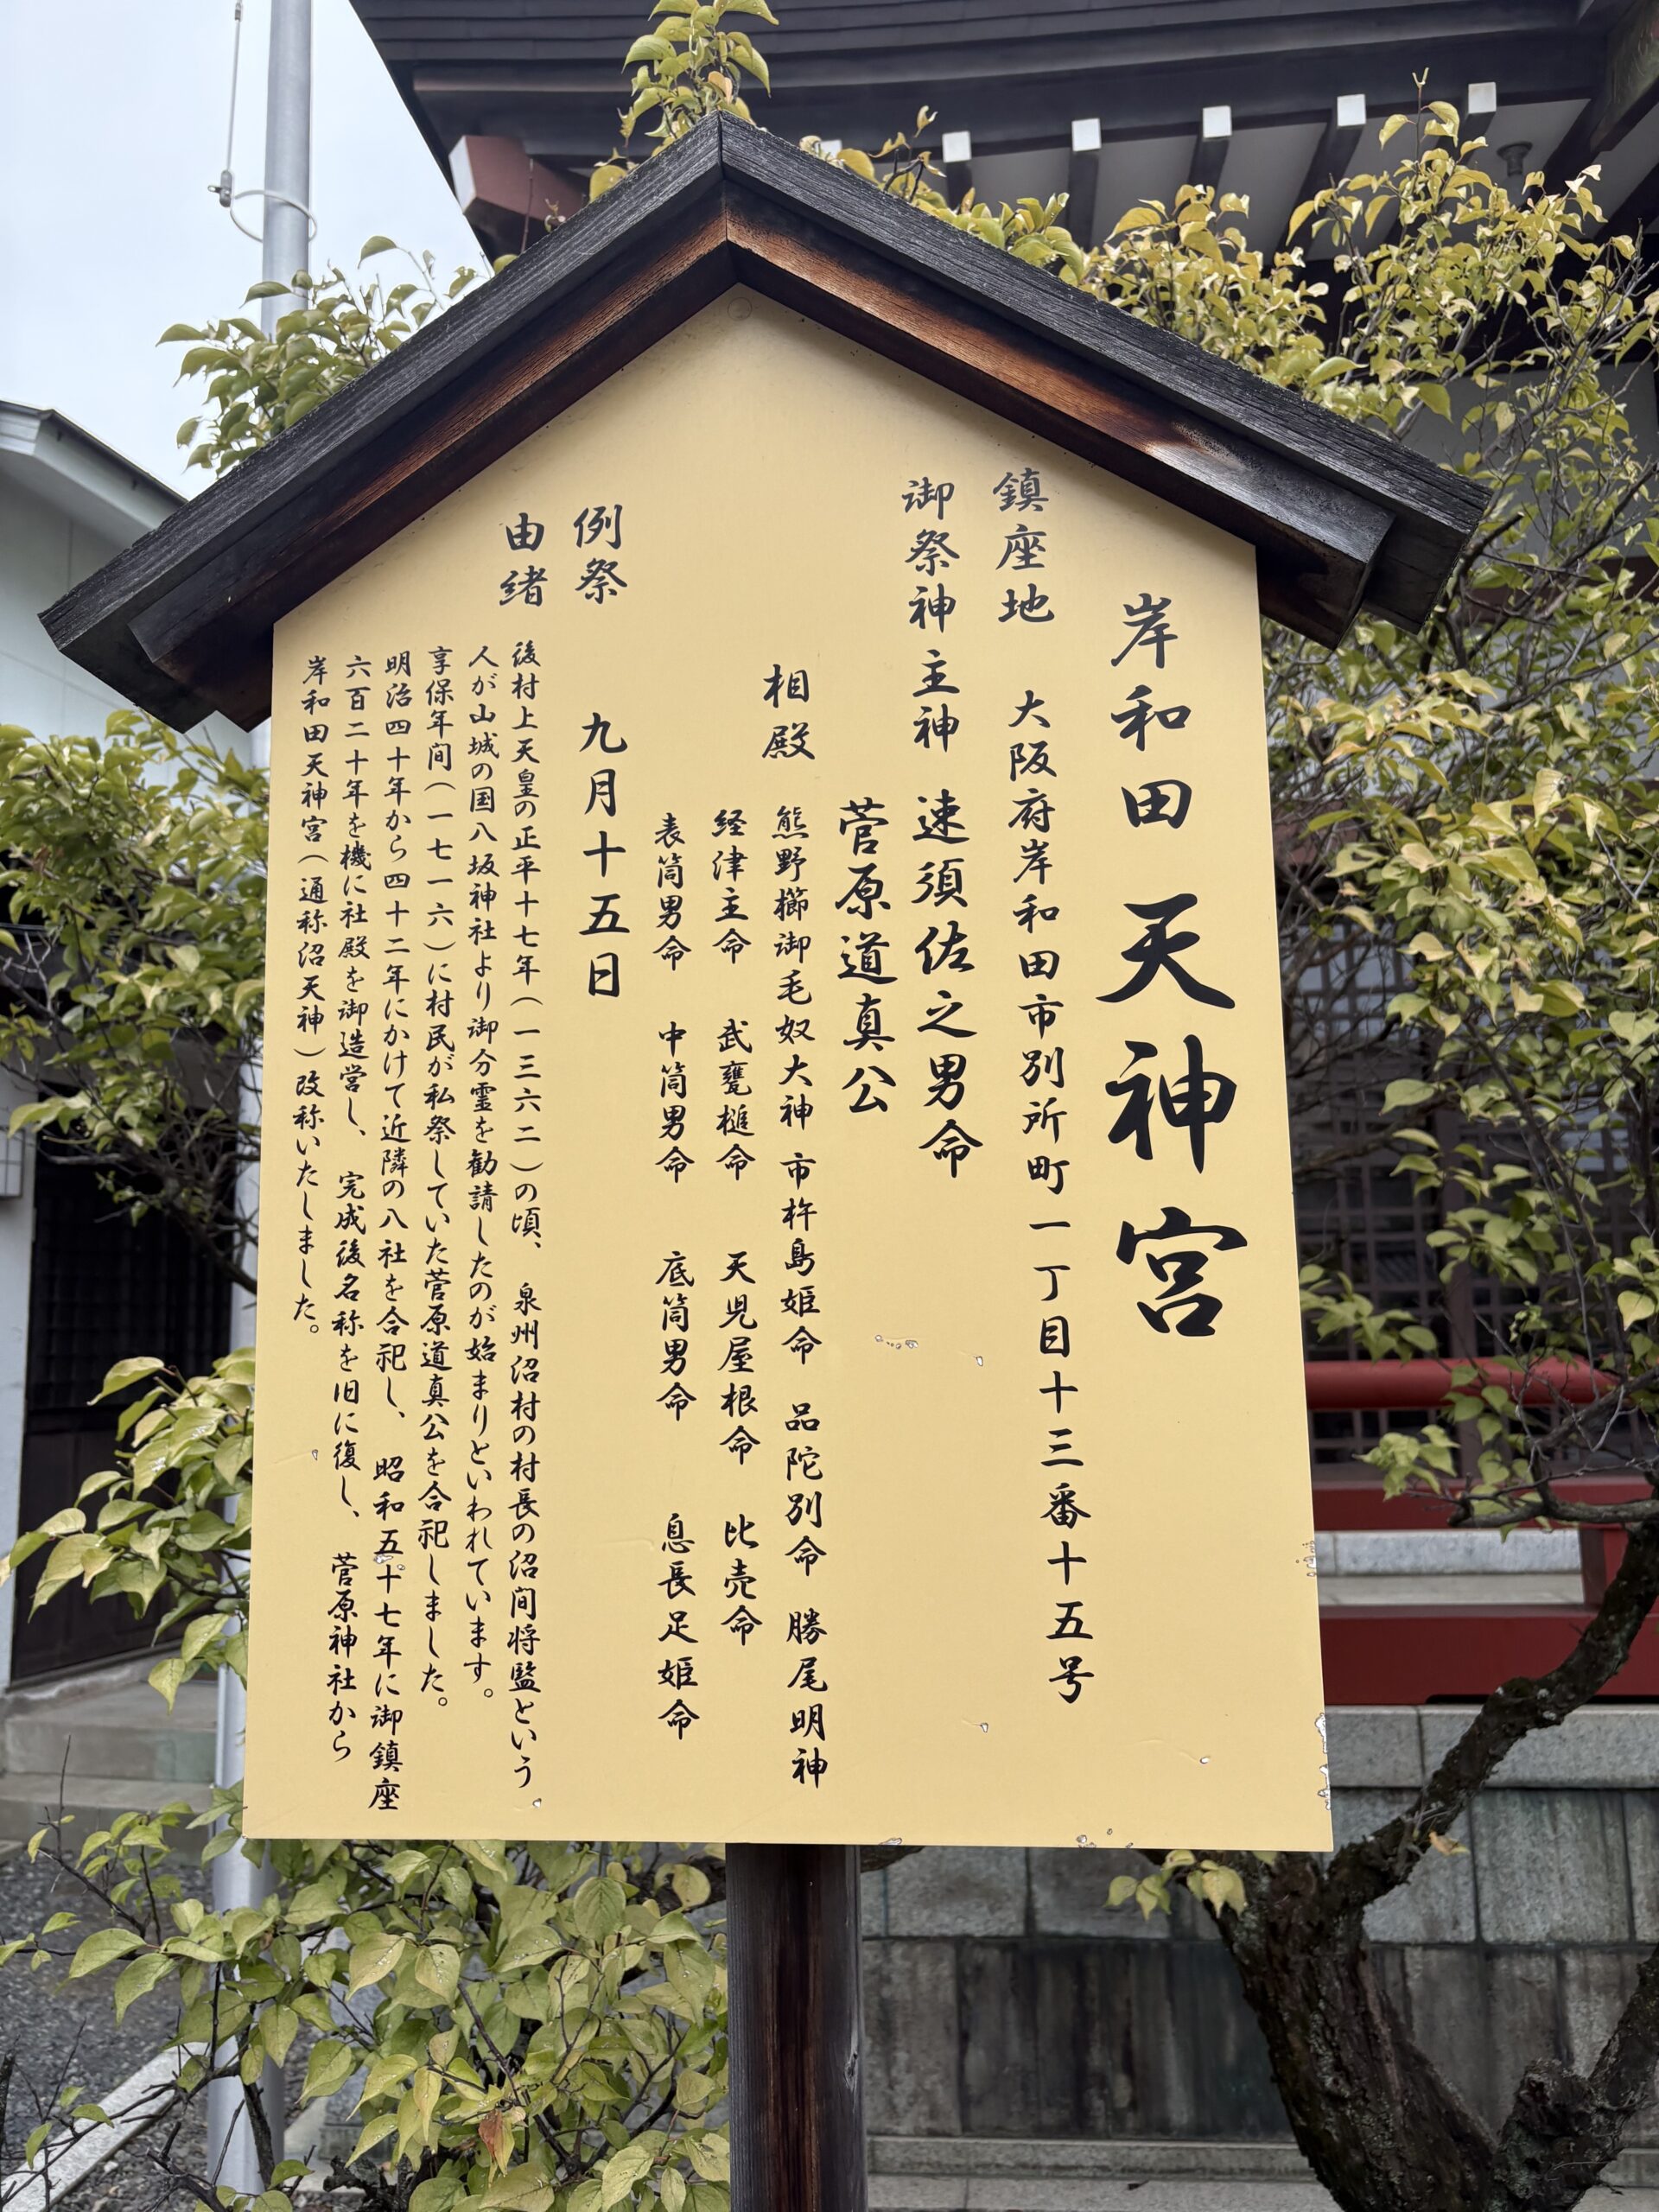 岸和田天神宮
鎮座地 大阪府岸和田市別所町一丁目十三番十五号
御祭神 主神 速須佐之男命
菅原道真公
相殿 熊野櫛御毛奴大神 市杵島姫命 品陀別命 勝尾明神
経津主命 武甕槌命 天児屋根命 比売命
表筒男命 中筒男命 底筒男命 息長足姫命
例祭 九月十五日
由緒 後村上天皇の正平十七年(一三六二)の頃、泉州沼村の村長の沼間将監という
人が山城の国八坂神社より御分霊を勧請したのが始まりといわれています。
享保年間(一七一六)に村民が私祭していた菅原道真公を合祀しました。
明治四十年から四十二年にかけて近隣の八社を合祀し、昭和五十七年に御鎮座
六百二十年を機に社殿を御造営し、完成後名称を旧に復し、菅原神社から
岸和田天神宮(通称沼天神)改称いたしました。